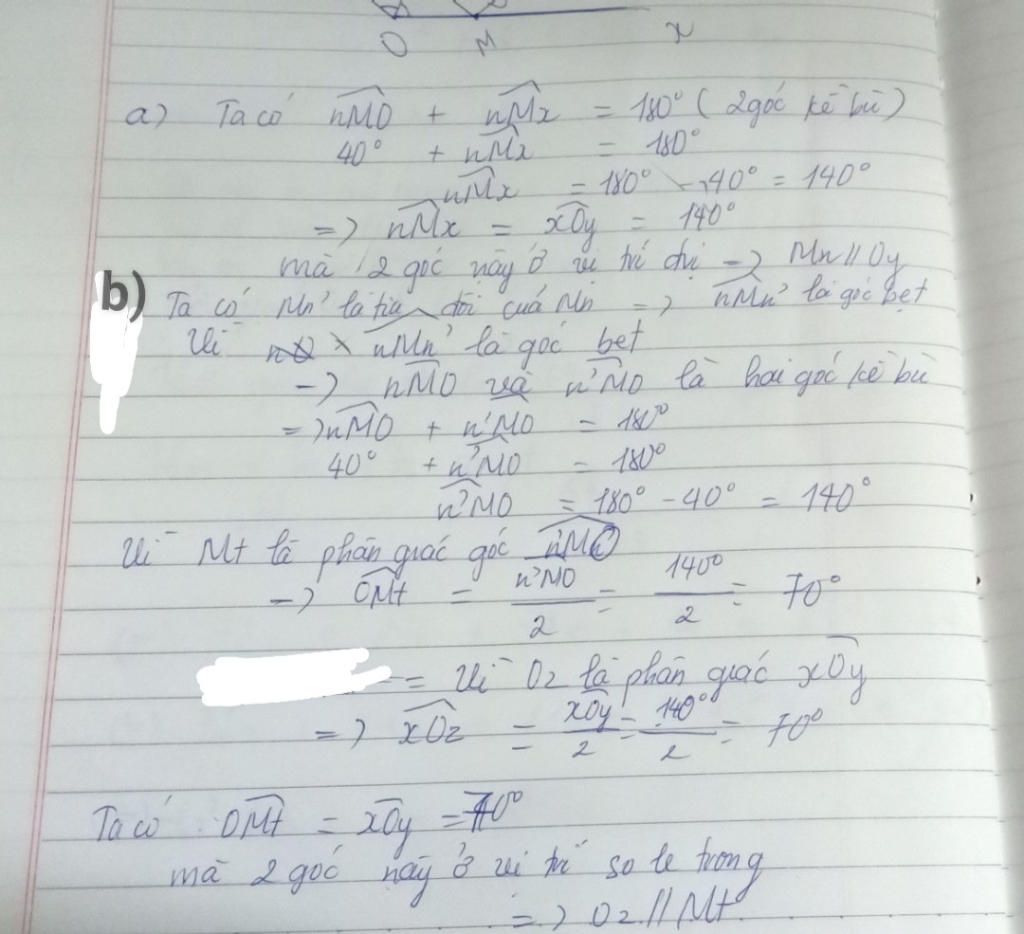 O M x
a) Ta có nMO + nMx = 180° ( 2 góc kề bù )
40° + nMx = 180°
nMx = 180° - 40° = 140°
=> nMx = xOy = 140°
mà 2 góc này ở vị trí đvị -> Mn // Oy
b) Ta có Mn' là tia đối của Mn => nMn' là góc bẹt
Vì nMn' là góc bẹt
-> nMO và n'MO là hai góc kề bù
=> nMO + n'MO = 180°
40° + n'MO = 180°
n'MO = 180° - 40° = 140°
Vì Mt là phân giác góc n'MO
-> OMt = n'MO/2 = 140°/2 = 70°
= Vì Oz là phân giác xOy
=> xOz = xOy/2 = 140°/2 = 70°
Ta có OMt = xOy = 70°
mà 2 góc này ở vị trí so le trong
=> Oz // Mt